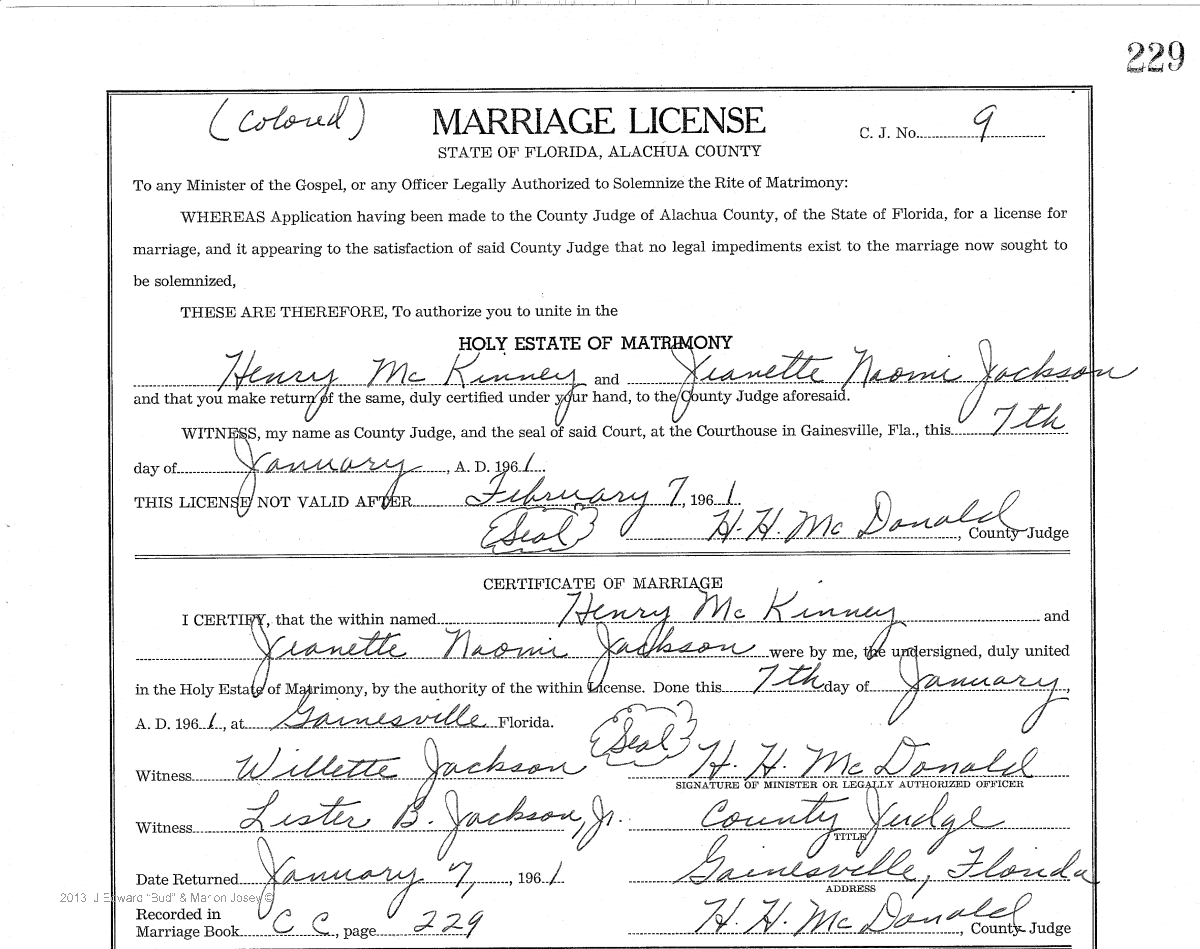 229
(Colored) MARRIAGE LICENSE C. J. No. 9
STATE OF FLORIDA, ALACHUA COUNTY
To any Minister of the Gospel, or any Officer Legally Authorized to Solemnize the Rite of Matrimony:
WHEREAS Application having been made to the County Judge of Alachua County, of the State of Florida, for a license for
marriage, and it appearing to the satisfaction of said County Judge that no legal impediments exist to the marriage now sought to
be solemnized,
THESE ARE THEREFORE, To authorize you to unite in the
HOLY ESTATE OF MATRIMONY
Henry McKinney and Jeanette Naomi Jackson
and that you make return of the same, duly certified under your hand, to the County Judge aforesaid.
WITNESS, my name as County Judge, and the seal of said Court, at the Courthouse in Gainesville, Fla., this 7th
day of January, A. D. 1961
THIS LICENSE NOT VALID AFTER February 7, 1961
(Seal) H. H. McDonald, County Judge
CERTIFICATE OF MARRIAGE
I CERTIFY, that the within named Henry McKinney and
Jeanette Naomi Jackson were by me, the undersigned, duly united
in the Holy Estate of Matrimony, by the authority of the within License. Done this 7th day of January,
A. D. 1961, at Gainesville Florida.
(Seal)
Witness Willette Jackson H. H. McDonald
SIGNATURE OF MINISTER OR LEGALLY AUTHORIZED OFFICER
Witness Lester B. Jackson, Jr. County Judge
TITLE
Date Returned January 7, 1961 Gainesville, Florida
ADDRESS
2013 J Edward "Bud" & Marion Josey ©
Recorded in
Marriage Book CC, page 229 H. H. McDonald, County Judge